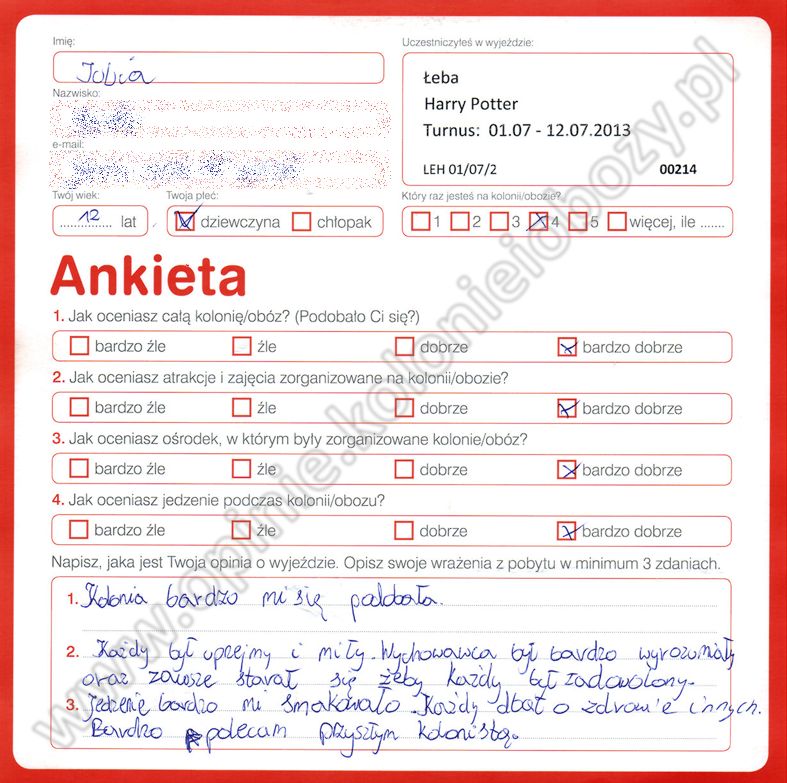 Imię:
Julia
Nazwisko:
e-mail:
Twój wiek:
12 lat
Twoja płeć:
dziewczyna chłopak
Uczestniczyłeś w wyjeździe:
Łeba
Harry Potter
Turnus: 01.07 - 12.07.2013
LEH 01/07/2 00214
Który raz jesteś na kolonii/obozie?
1 2 3 4 5 więcej, ile .......
Ankieta
1. Jak oceniasz całą kolonię/obóz? (Podobało Ci się?)
bardzo źle źle dobrze bardzo dobrze
2. Jak oceniasz atrakcje i zajęcia zorganizowane na kolonii/obozie?
bardzo źle źle dobrze bardzo dobrze
3. Jak oceniasz ośrodek, w którym były zorganizowane kolonie/obóz?
bardzo źle źle dobrze bardzo dobrze
4. Jak oceniasz jedzenie podczas kolonii/obozu?
bardzo źle źle dobrze bardzo dobrze
Napisz, jaka jest Twoja opinia o wyjeździe. Opisz swoje wrażenia z pobytu w minimum 3 zdaniach.
1. Kolonia bardzo mi się podobała.
2. Każdy był uprzejmy i miły. Wychowawca był bardzo wyrozumiały
oraz zawsze starał się żeby każdy był zadowolony.
3. Jedzenie bardzo mi smakowało. Każdy dbał o zdrowie innych.
Bardzo polecam przyszłym kolonistą.
www.opinie.kolonieiobozy.pl